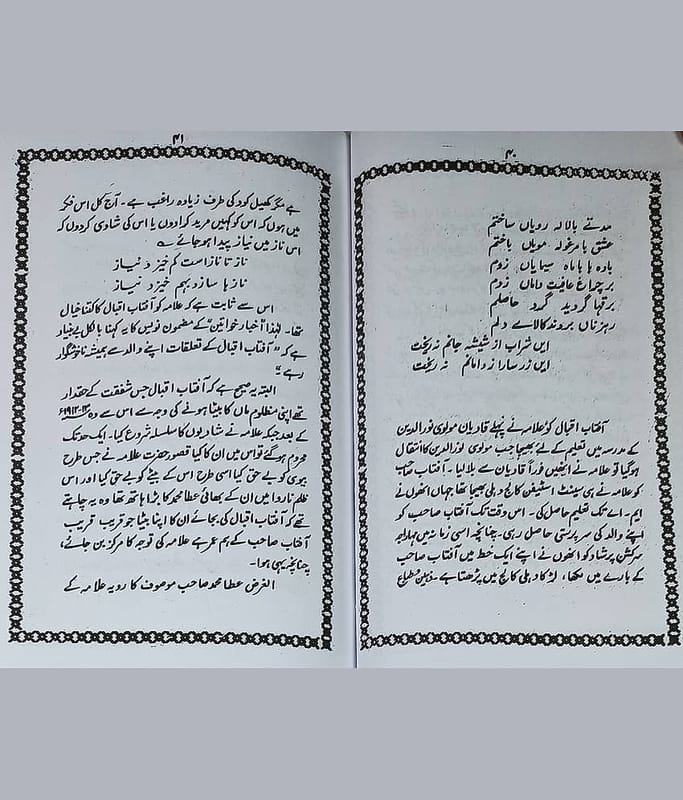 ۴۰
مدتے بالالہ رویاں ساختم
عشق بامرغولہ مویاں باختم
بادہ ہا باماہ سیمایاں زدم
بر چراغ عافیت داماں زدم
برقہا گردید گرد حاصلم
رہزناں بردند کالاے دلم
ایں شراب از شیشہ جانم نہ ریخت
ایں زر سارا ز دامانم نہ ریخت
آفتاب اقبال کو علامہ نے پہلے قادیان مولوی نورالدین
کے مدرسہ میں تعلیم کے لئے بھیجا جب مولوی نورالدین کا انتقال
ہوگیا تو علامہ نے انھیں فوراً قادیان سے بلالیا۔ آفتاب صاحب
کو علامہ نے ہی سینٹ اسٹیفن کالج دہلی بھیجا تھا جہاں انھوں نے
ایم۔ اے تک تعلیم حاصل کی۔ اس وقت تک آفتاب صاحب کو
اپنے والد کی سرپرستی حاصل رہی۔ چنانچہ اسی زمانہ میں مہاراجہ
سرکشن پرشاد کو انھوں نے اپنے ایک خط میں آفتاب صاحب
کے بارے میں لکھا، لڑکا دہلی کالج میں پڑھتا ہے۔ ذہین و طباع
۴۱
ہے مگر کھیل کود کی طرف زیادہ راغب ہے۔ آج کل اس فکر
میں ہوں کہ اس کو کہیں مرید کرادوں یا اس کی شادی کردوں کہ
اس ناز میں نیاز پیدا ہوجائے ؎
ناز تا نازاست کم خیزد نیاز
ناز ہا سازد بہم خیزد نیاز
اس سے ثابت ہے کہ علامہ کو آفتاب اقبال کا کتنا خیال
تھا۔ لہٰذا "اخبار خواتین" کے مضمون نویس کا یہ کہنا بالکل بے بنیاد
ہے کہ "آفتاب اقبال کے تعلقات اپنے والد سے ہمیشہ ناخوشگوار
رہے"
البتہ یہ صحیح ہے کہ آفتاب اقبال جس شفقت کے حقدار
تھے اپنی مظلوم ماں کا بیٹا ہونے کی وجہ سے اس سے وہ ۱۳-۱۹۱۲ء
کے بعد جبکہ علامہ نے شادیوں کا سلسلہ شروع کیا۔ ایک حد تک
محروم ہوگئے تو اس میں ان کا کیا قصور حضرت علامہ نے جس طرح
بیوی کو بے حق کیا اسی طرح اس کے بیٹے کو بے حق کیا اور اس
ظلم ناروا میں ان کے بھائی عطا محمد کا بڑا ہاتھ تھا وہ یہ چاہتے
تھے کہ آفتاب اقبال کی بجائے ان کا اپنا بیٹا جو قریب قریب
آفتاب صاحب کے ہم عمر ہے علامہ کی توجہ کا مرکز بن جائے،
چنانچہ یہی ہوا۔
الغرض عطا محمد صاحب موصوف کا رویہ علامہ کے